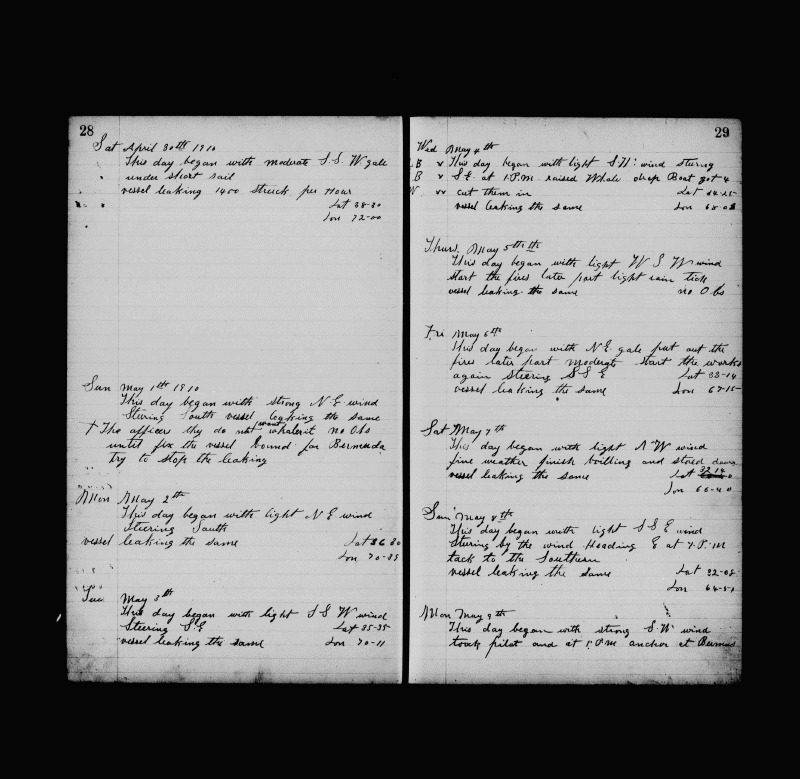 28
Sat April 30th 1910
This day began with moderate S.S. W gale
under short sail
vessel leaking 1400 struck per Hour
Lat 38-30
Lon 72-00
Sun May 1th 1910
This day began with strong N E wind
Steering South vessel leaking the same
† The officer thy do not want whaleit no Obs
until fix the vessel bound for Bermuda
try to stop the leaking
Mon May 2th
This day began with light N E wind
steering South
vessel leaking the same Lat 36 30
Lon 70-35
Tue May 3th
This day began with light S S W wind
Steering S.E Lat 35-35
vessel leaking the same Lon 70-11
29
Wed May 4th
B v This day began with light S.W. wind stering
B v S.E. at 1 P.M. raised Whale drop Boat got 4
vv cut them in Lat 34-25
vessel leaking the same Lon 68-02
Thurs. May 5th th
This day began with light W S W wind
start the fires later part light rain tick
vessel leaking the same no Obs
Fri May 6th
This day began with N.E. gale put out the
fires later part moderate start the works
again steering S S E Lat 33-14
vessel leaking the same Lon 67-15
Sat May 7th
This day began with light N W wind
fine weather finish boilling and stored down
vessel leaking the same Lat 32 14
Lon 65-40
Sun May 8th
This day began with light S S E wind
stering by the wind Heading E at 4.P.M
tack to the Southern
vessel leaking the same Lat 32-08
Lon 64-50
Mon May 9th
This day began with strong S.W. wind
took pilot and at 1.P.M anchor at Bermus